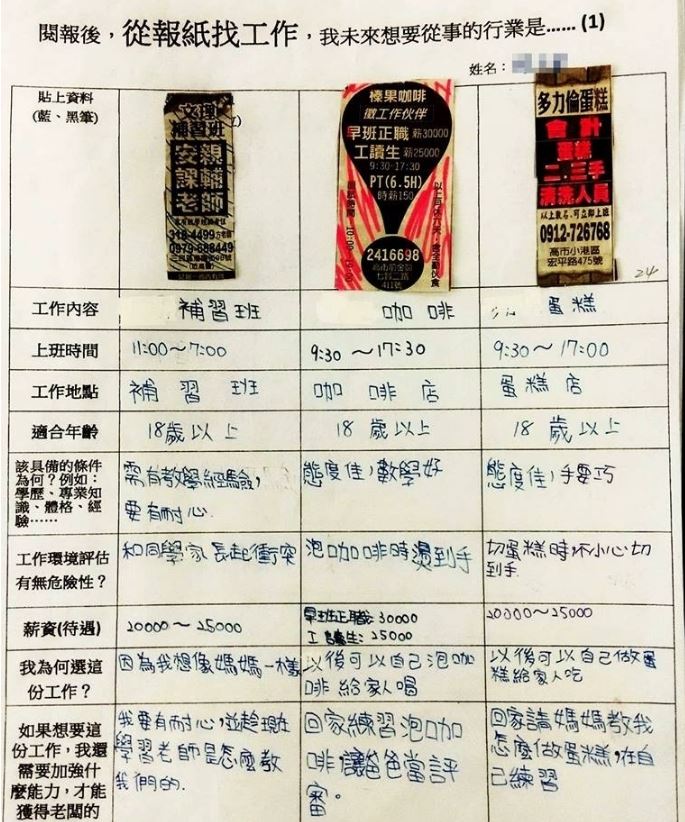 閱報後，從報紙找工作，我未來想要從事的行業是......(1)
姓名：
貼上資料
(藍、黑筆)
文理
補習班
安親
課輔
老師
318-4499
0979-688449
榛果咖啡
徵工作伙伴
早班正職 薪30000
工讀生 薪25000
9:30-17:30
PT(6.5H)
時薪150
2416698
高市前金區
七賢二路
411號
多力倫蛋糕
會計
蛋糕
二、三手
清洗人員
以上數名,可立即上班
0912-726768
高市小港區
宏平路475號
24
工作內容
補習班
咖啡
蛋糕
上班時間
11:00～7:00
9:30～17:30
9:30～17:00
工作地點
補習班
咖啡店
蛋糕店
適合年齡
18歲以上
18歲以上
18歲以上
該具備的條件
為何？例如：
學歷、專業知
識、體格、經
驗……
需有教學經驗，
要有耐心.
態度佳，數學好
態度佳，手要巧
工作環境評估
有無危險性？
和同學家長起衝突
泡咖啡時燙到手
切蛋糕時不小心切
到手.
薪資(待遇)
20000～25000
早班正職: 30000
工讀生: 25000
20000～25000
我為何選這
份工作？
因為我想像媽媽一樣
以後可以自己泡咖
啡給家人喝
以後可以自己做蛋
糕給家人吃
如果想要這
份工作，我還
需要加強什
麼能力，才能
獲得老闆的
我要有耐心,並趁現在
學習老師是怎麼教
我們的.
回家練習泡咖
啡讓爸爸當評
審。
回家請媽媽教我
怎麼做蛋糕,在自
己練習